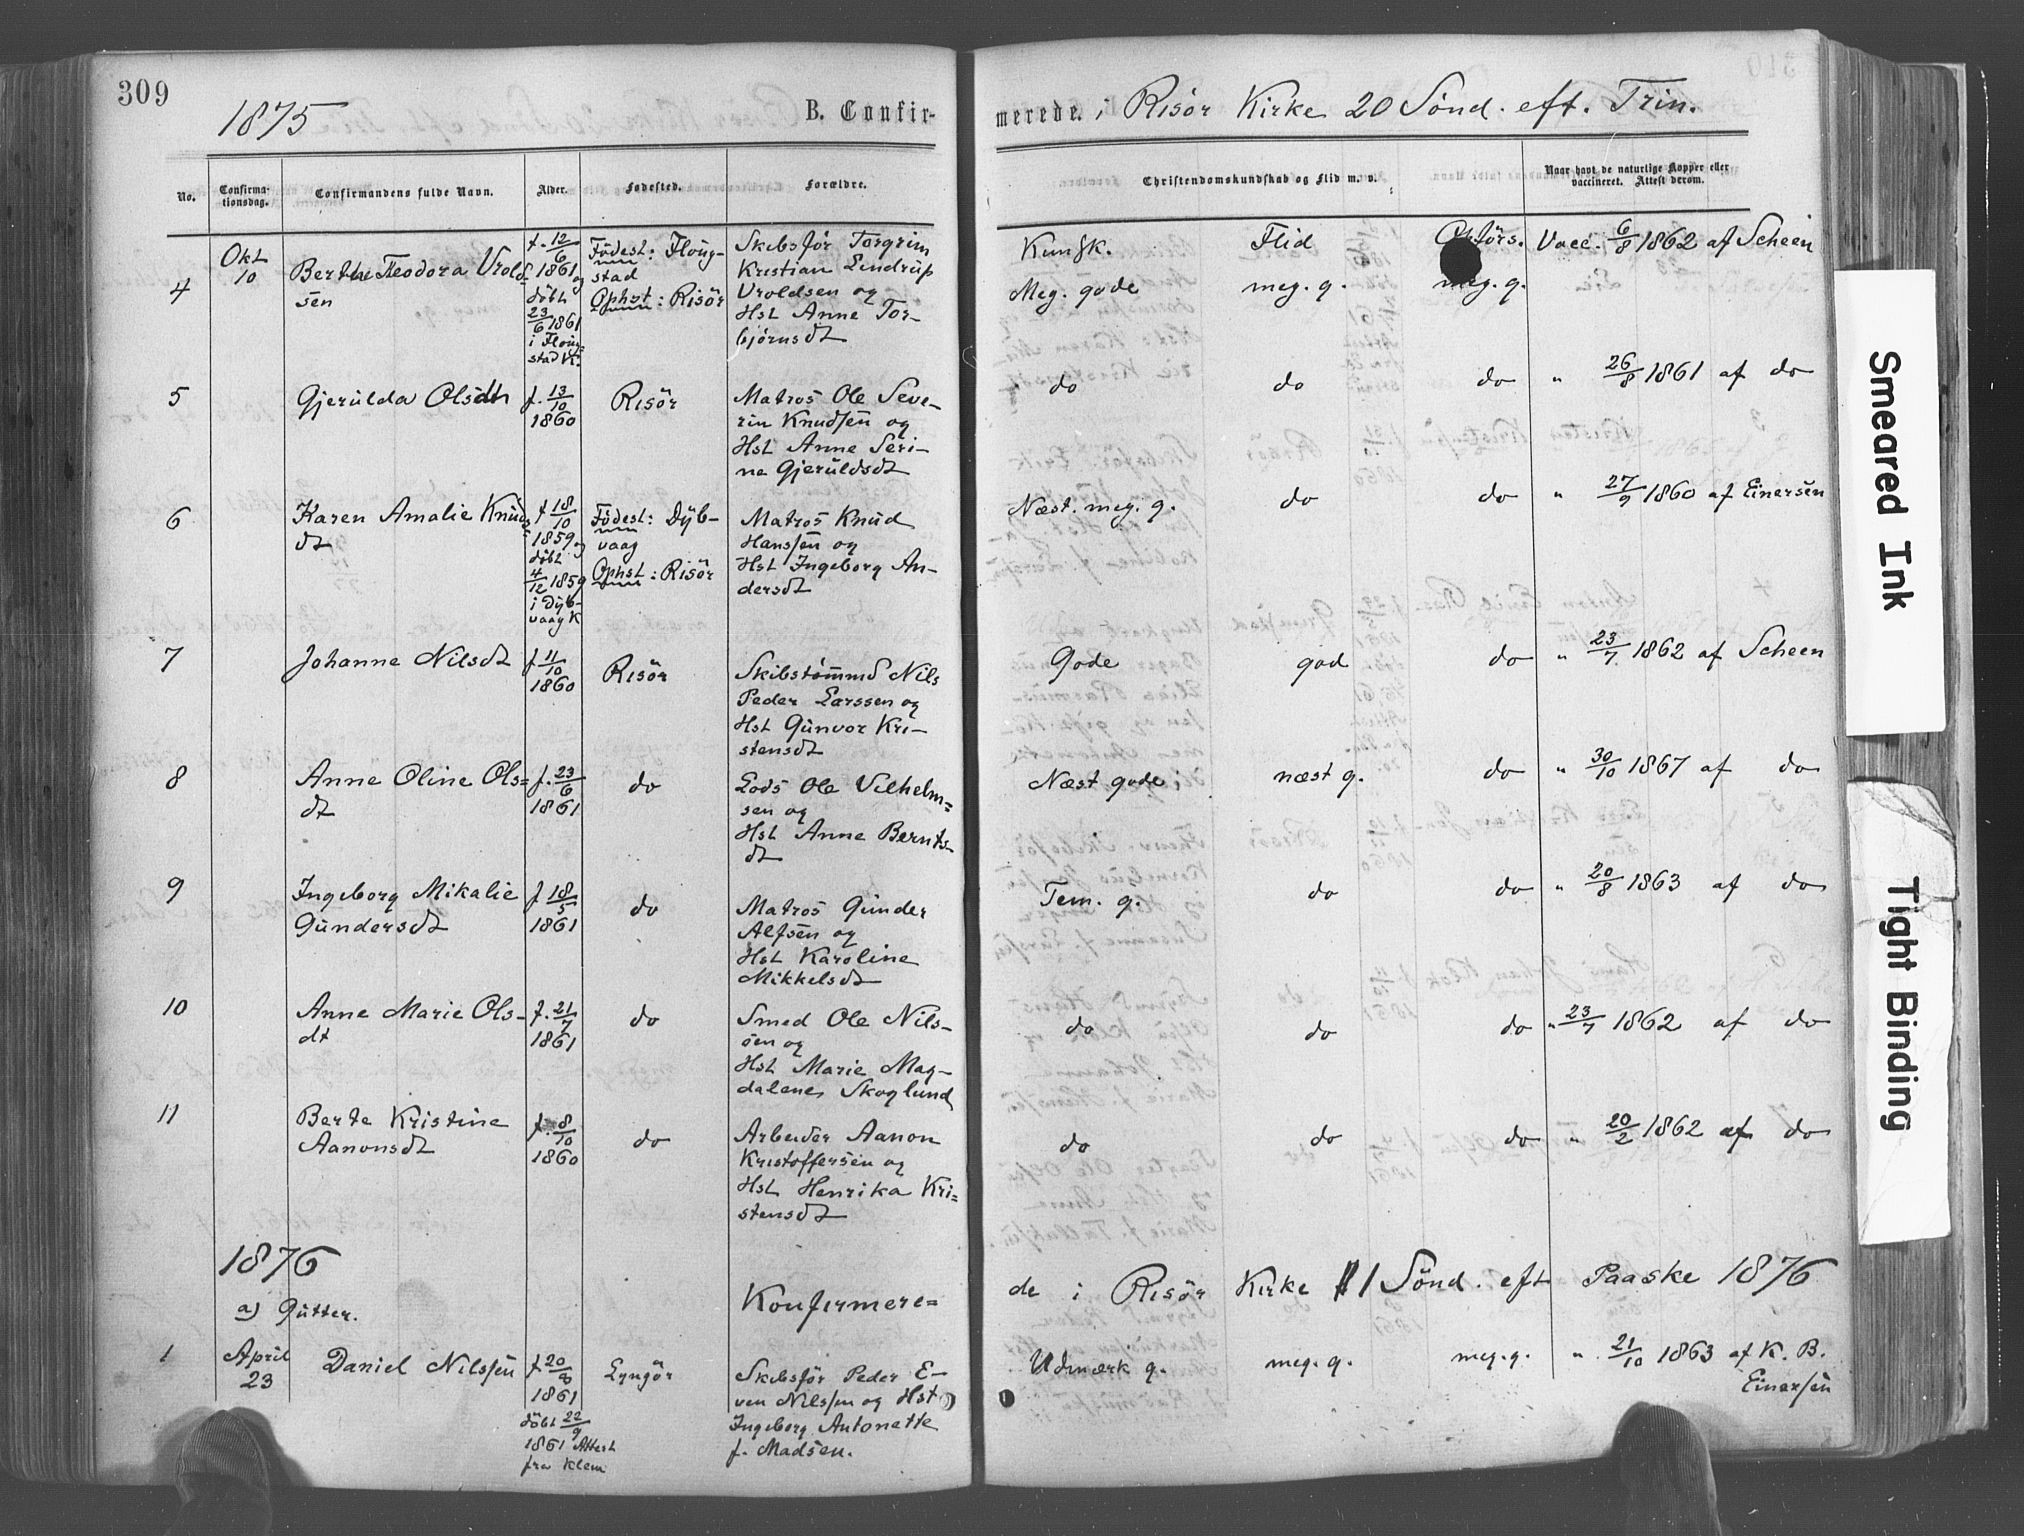 309
1875
B. Confirmerede. i Risör Kirke 20 Sönd. eft. Trin.
No.
Confirmationsdag.
Confirmandens fulde Navn.
Alder.
Fødested.
Forældre.
Christendomskundskab og Flid m. v.
Naar havt de naturlige Kopper eller vaccineret. Attest derom.
Kunsk. Flid Opförs.
4
Okt
10
Berthe Teodora Vrold-
sen
f. 12/6
1861 og
döbt
23/6 1861
i Floug-
stad K.
Födest: Floug-
stad
Ophst: Risör
Skibsför Torgrim
Kristian Lindrup
Vroldsen og
Hst Anne Tor-
björnsdt
Meg. gode meg. g. meg. g.
Vacc. 6/8 1862 af Scheen
5
Gjerulda Olsdtr
f. 13/10
1860
Risör
Matros Ole Seve-
rin Knudsen og
Hst Anne Seri-
ne Gjeruldsdt
do do do " 26/8 1861 af do
6
Karen Amalie Knuds-
dt
f 18/10
1859 og
döbt
4/12 1859
i Dyb-
vaag K
Födest: Dyb-
vaag
Ophst: Risör
Matros Knud
Hanssen og
Hst Ingeborg An-
dersdt
Næst. meg. g. do do " 27/9 1860 af Einersen
7
Johanne Nilsdt
f 11/10
1860
Risör
Skibstømmd Nils
Peder Larssen og
Hst Gunvor Kri-
stensdt
Gode god do " 23/7 1862 af Scheen
8
Anne Oline Ols=
dt
f. 23/6
1861
do
Lods Ole Vilhelm=
sen og
Hst Anne Bernts-
dt
Næst gode næst g. do " 30/10 1867 af do
9
Ingeborg Mikalie
Gundersdt
f 18/5
1861
do
Matros Gunder
Alfsen og
Hst Karoline
Mikkelsdt
Tem. g. do do " 20/8 1863 af do
10
Anne Marie Ols-
dt
f. 21/7
1861
do
Smed Ole Nils-
sen og
Hst Marie Mag-
dalene Skoglund
do do do " 23/7 1862 af do
11
Berte Kristine
Aanonsdt
f. 8/10
1860
do
Arbeider Aanon
Kristoffersen og
Hst Henrika Kri=
stensdt
do do do " 20/2 1862 af do
1876
a) Gutter.
Konfirmere=
de i Risör Kirke 1 Sönd. eft Paaske 1876
1
April
23
Daniel Nilssen
f 20/8
1861
döbt 22/9
1861 Attest
fra Klem
Lyngör
Skibsför Peder E-
ven Nilssen og Hst
Ingeborg Antonette
f. Madsen.
Udmærk g. meg. g. meg. g. " 21/10 1863 af K. B.
Einersen
Smeared Ink
Tight Binding